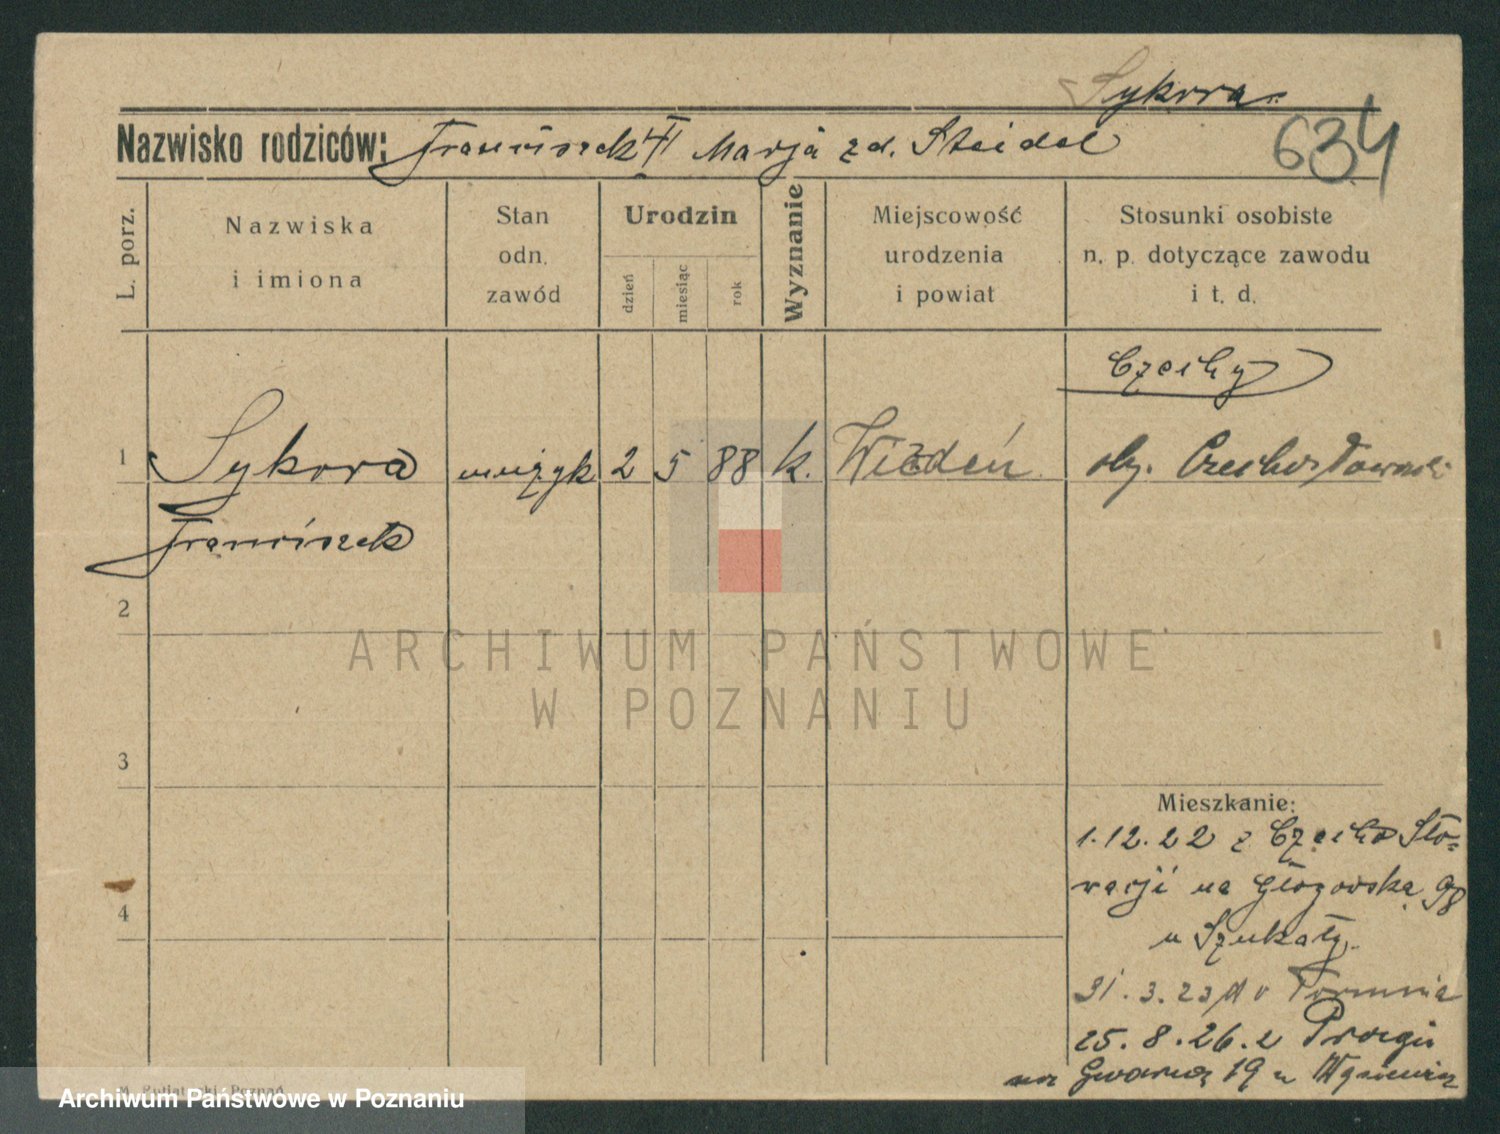 Sykora
Nazwisko rodziców: Franciszek Marja zd. Steidel
634
L. porz.
Nazwiska
i imiona
Stan
odn.
zawód
Urodzin
dzień
miesiąc
rok
Wyznanie
Miejscowość
urodzenia
i powiat
Stosunki osobiste
n. p. dotyczące zawodu
i t. d.
Czechy
1 Sykora muzyk 2 5 88 k. Wiedeń oby. Czechosłowacki
Franciszek
2
3
4
Mieszkanie:
1.12.22 z Czecho Sło-
wacji na Głogowską 98
u Szukały
31.3.23 do Torunia
25.8.26 z Pragi
na Gwarną 19 u
ARCHIWUM PAŃSTWOWE
W POZNANIU
Archiwum Państwowe w Poznaniu